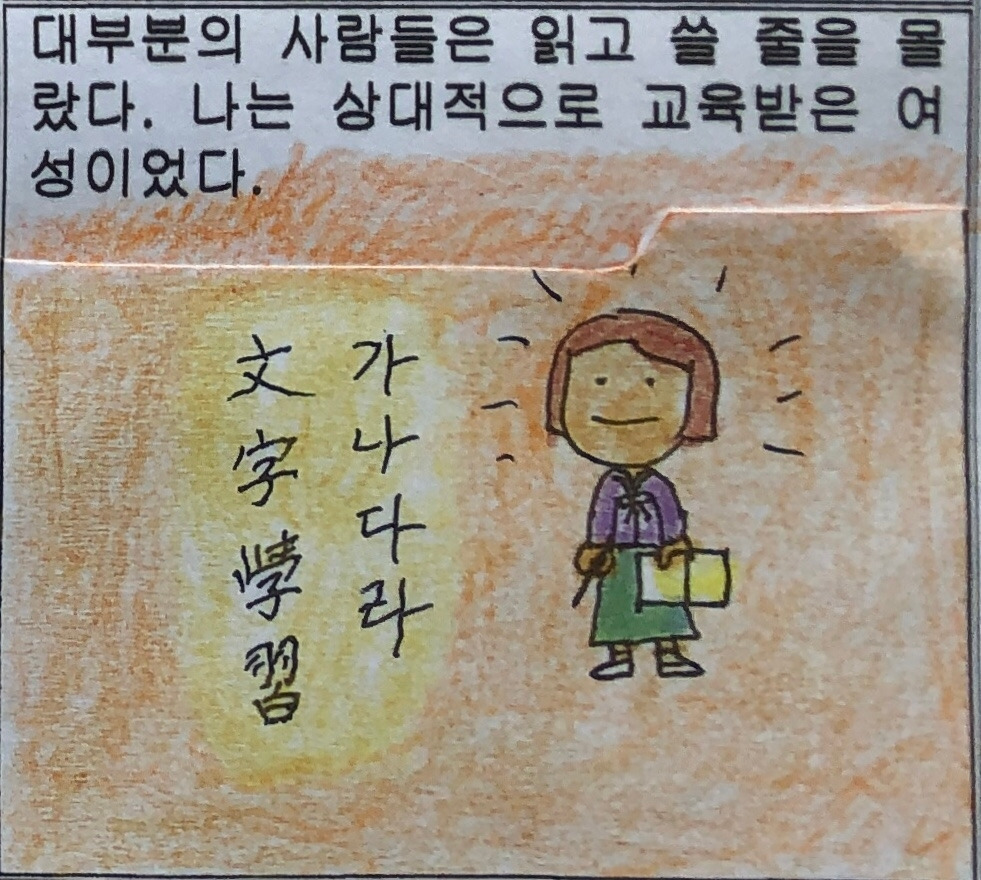 대부분의 사람들은 읽고 쓸 줄을 몰
랐다. 나는 상대적으로 교육받은 여
성이었다.
가나다라
文字學習